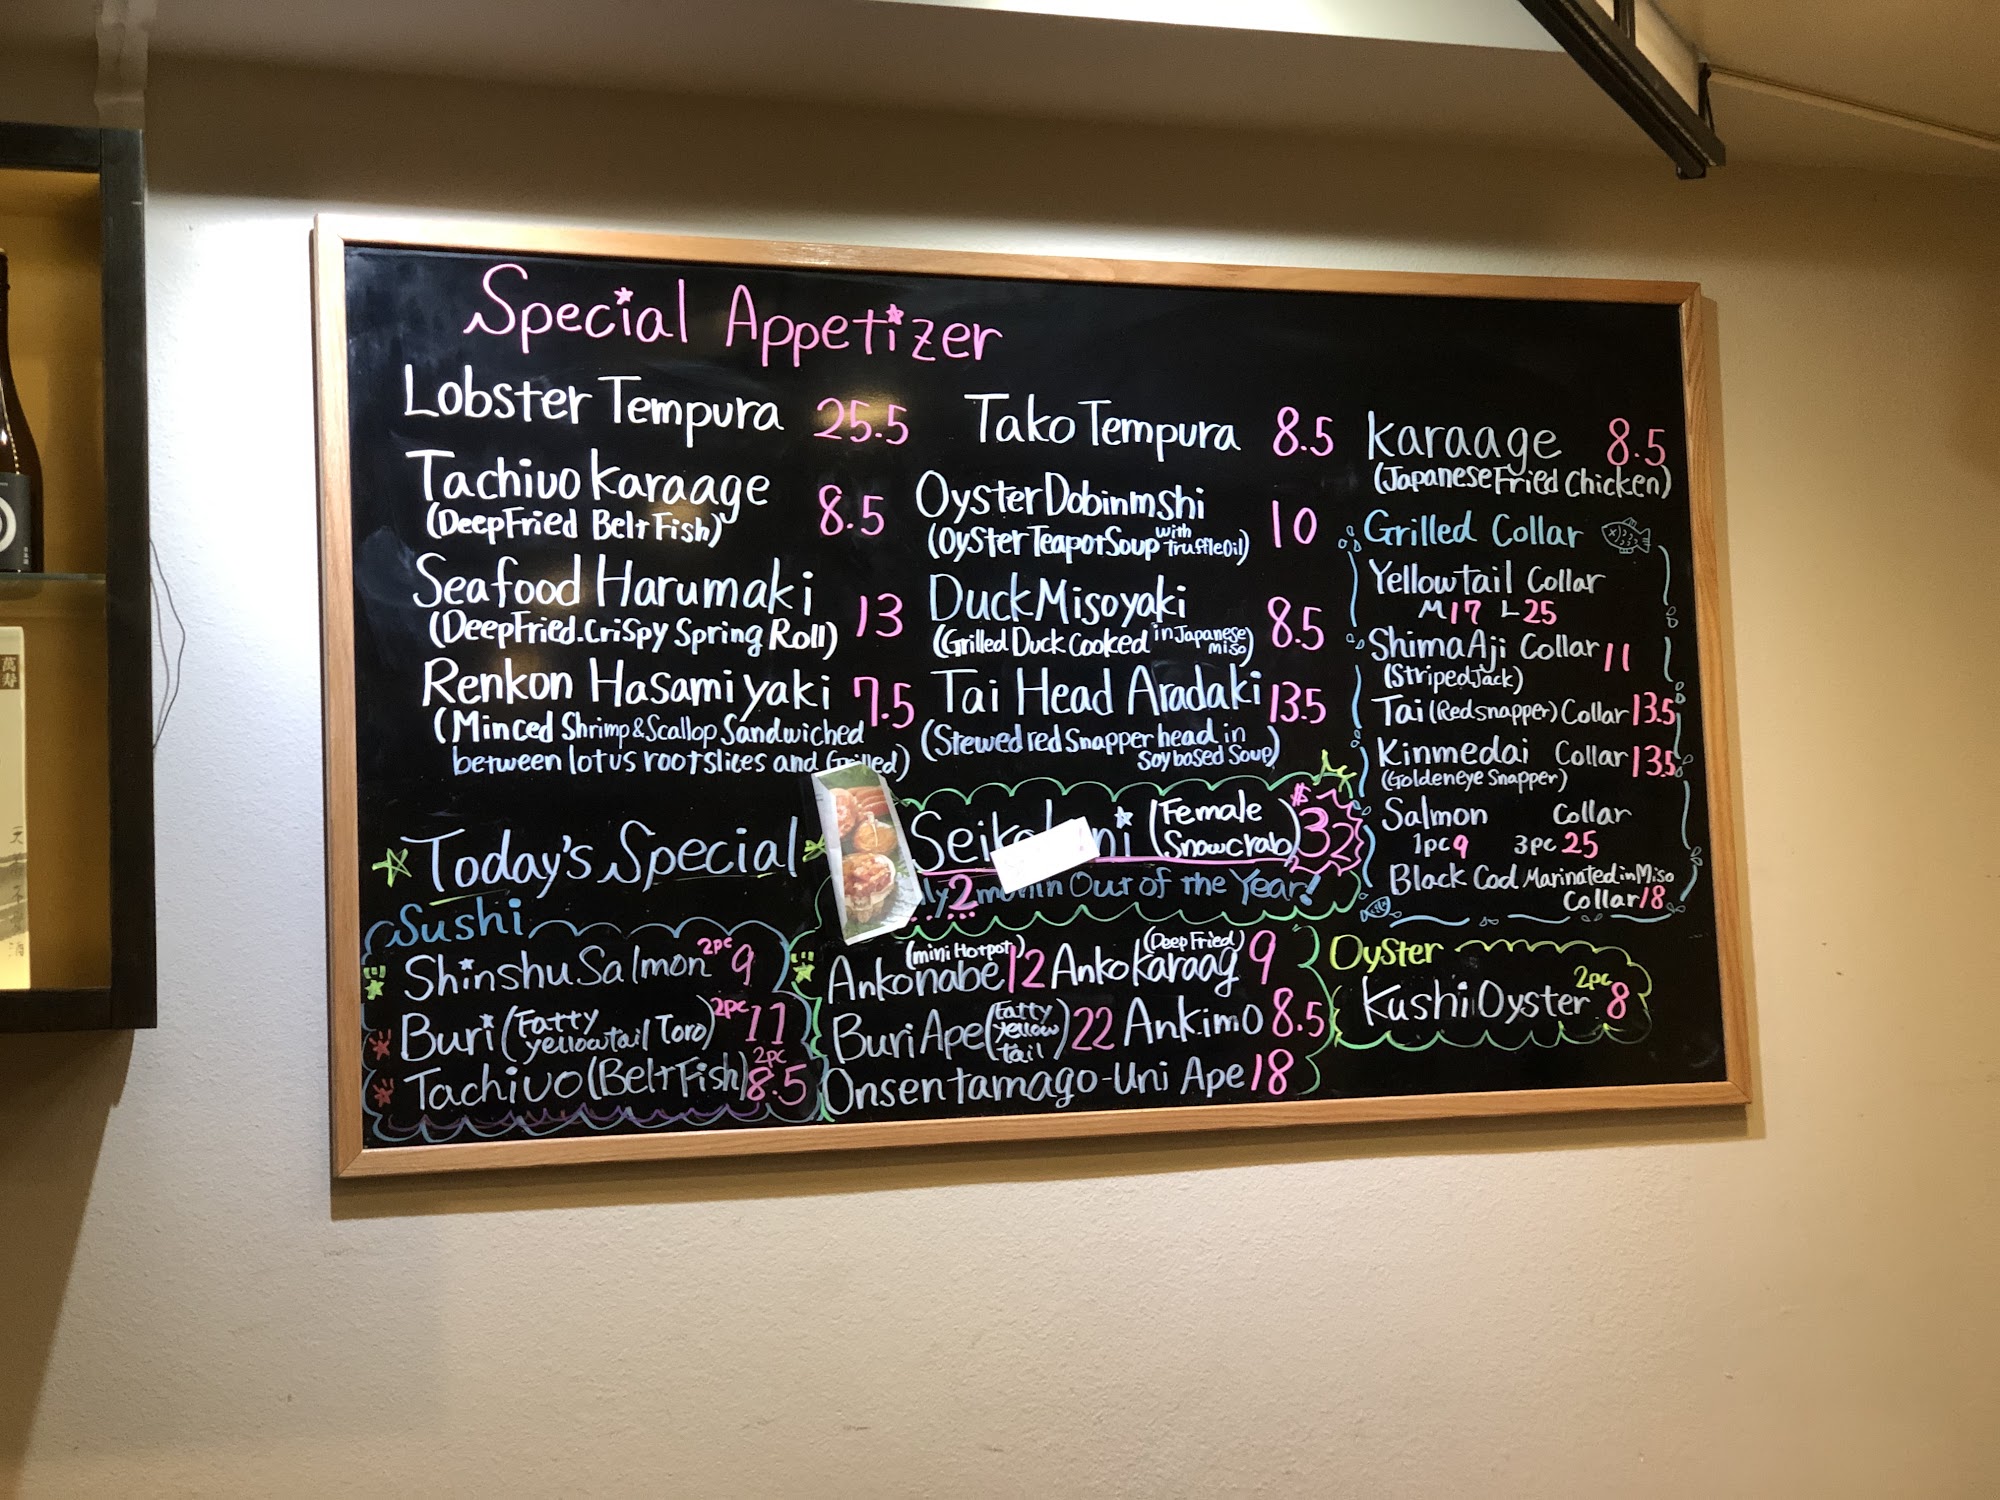 Special Appetizer
Lobster Tempura 25.5
Tachiuo Karaage 8.5
(Deep Fried Belt Fish)
Seafood Harumaki 13
(Deep Fried. Crispy Spring Roll)
Renkon Hasamiyaki 7.5
(Minced Shrimp & Scallop Sandwiched
between lotus root slices and Grilled)
Tako Tempura 8.5
Oyster Dobinmshi 10
(Oyster Teapot Soup with Truffle Oil)
Duck Misoyaki 8.5
(Grilled Duck Cooked in Japanese miso)
Tai Head Aradaki 13.5
(Stewed red Snapper head in
Soy based Soup)
Karaage 8.5
(Japanese Fried Chicken)
Grilled Collar
Yellowtail Collar
M 17 L 25
Shima Aji Collar 11
(Striped Jack)
Tai (Red snapper) Collar 13.5
Kinmedai Collar 13.5
(Goldeneye Snapper)
Salmon Collar
1pc 9 3pc 25
Black Cod Marinated in Miso
Collar 18
Today's Special
(Female Snowcrab) $32
2 month Out of the Year!
Sushi
Shinshu Salmon 2pc 9
Buri (Fatty yellowtail Toro) 2pc 11
Tachiuo (Belt Fish) 2pc 8.5
Ankonabe (mini Hotpot) 12 Anko Karaag (Deep Fried) 9
Buri Ape (Fatty yellow tail) 22 Ankimo 8.5
Onsen tamago-Uni Ape 18
Oyster
Kushi Oyster 2pc 8
萬寿